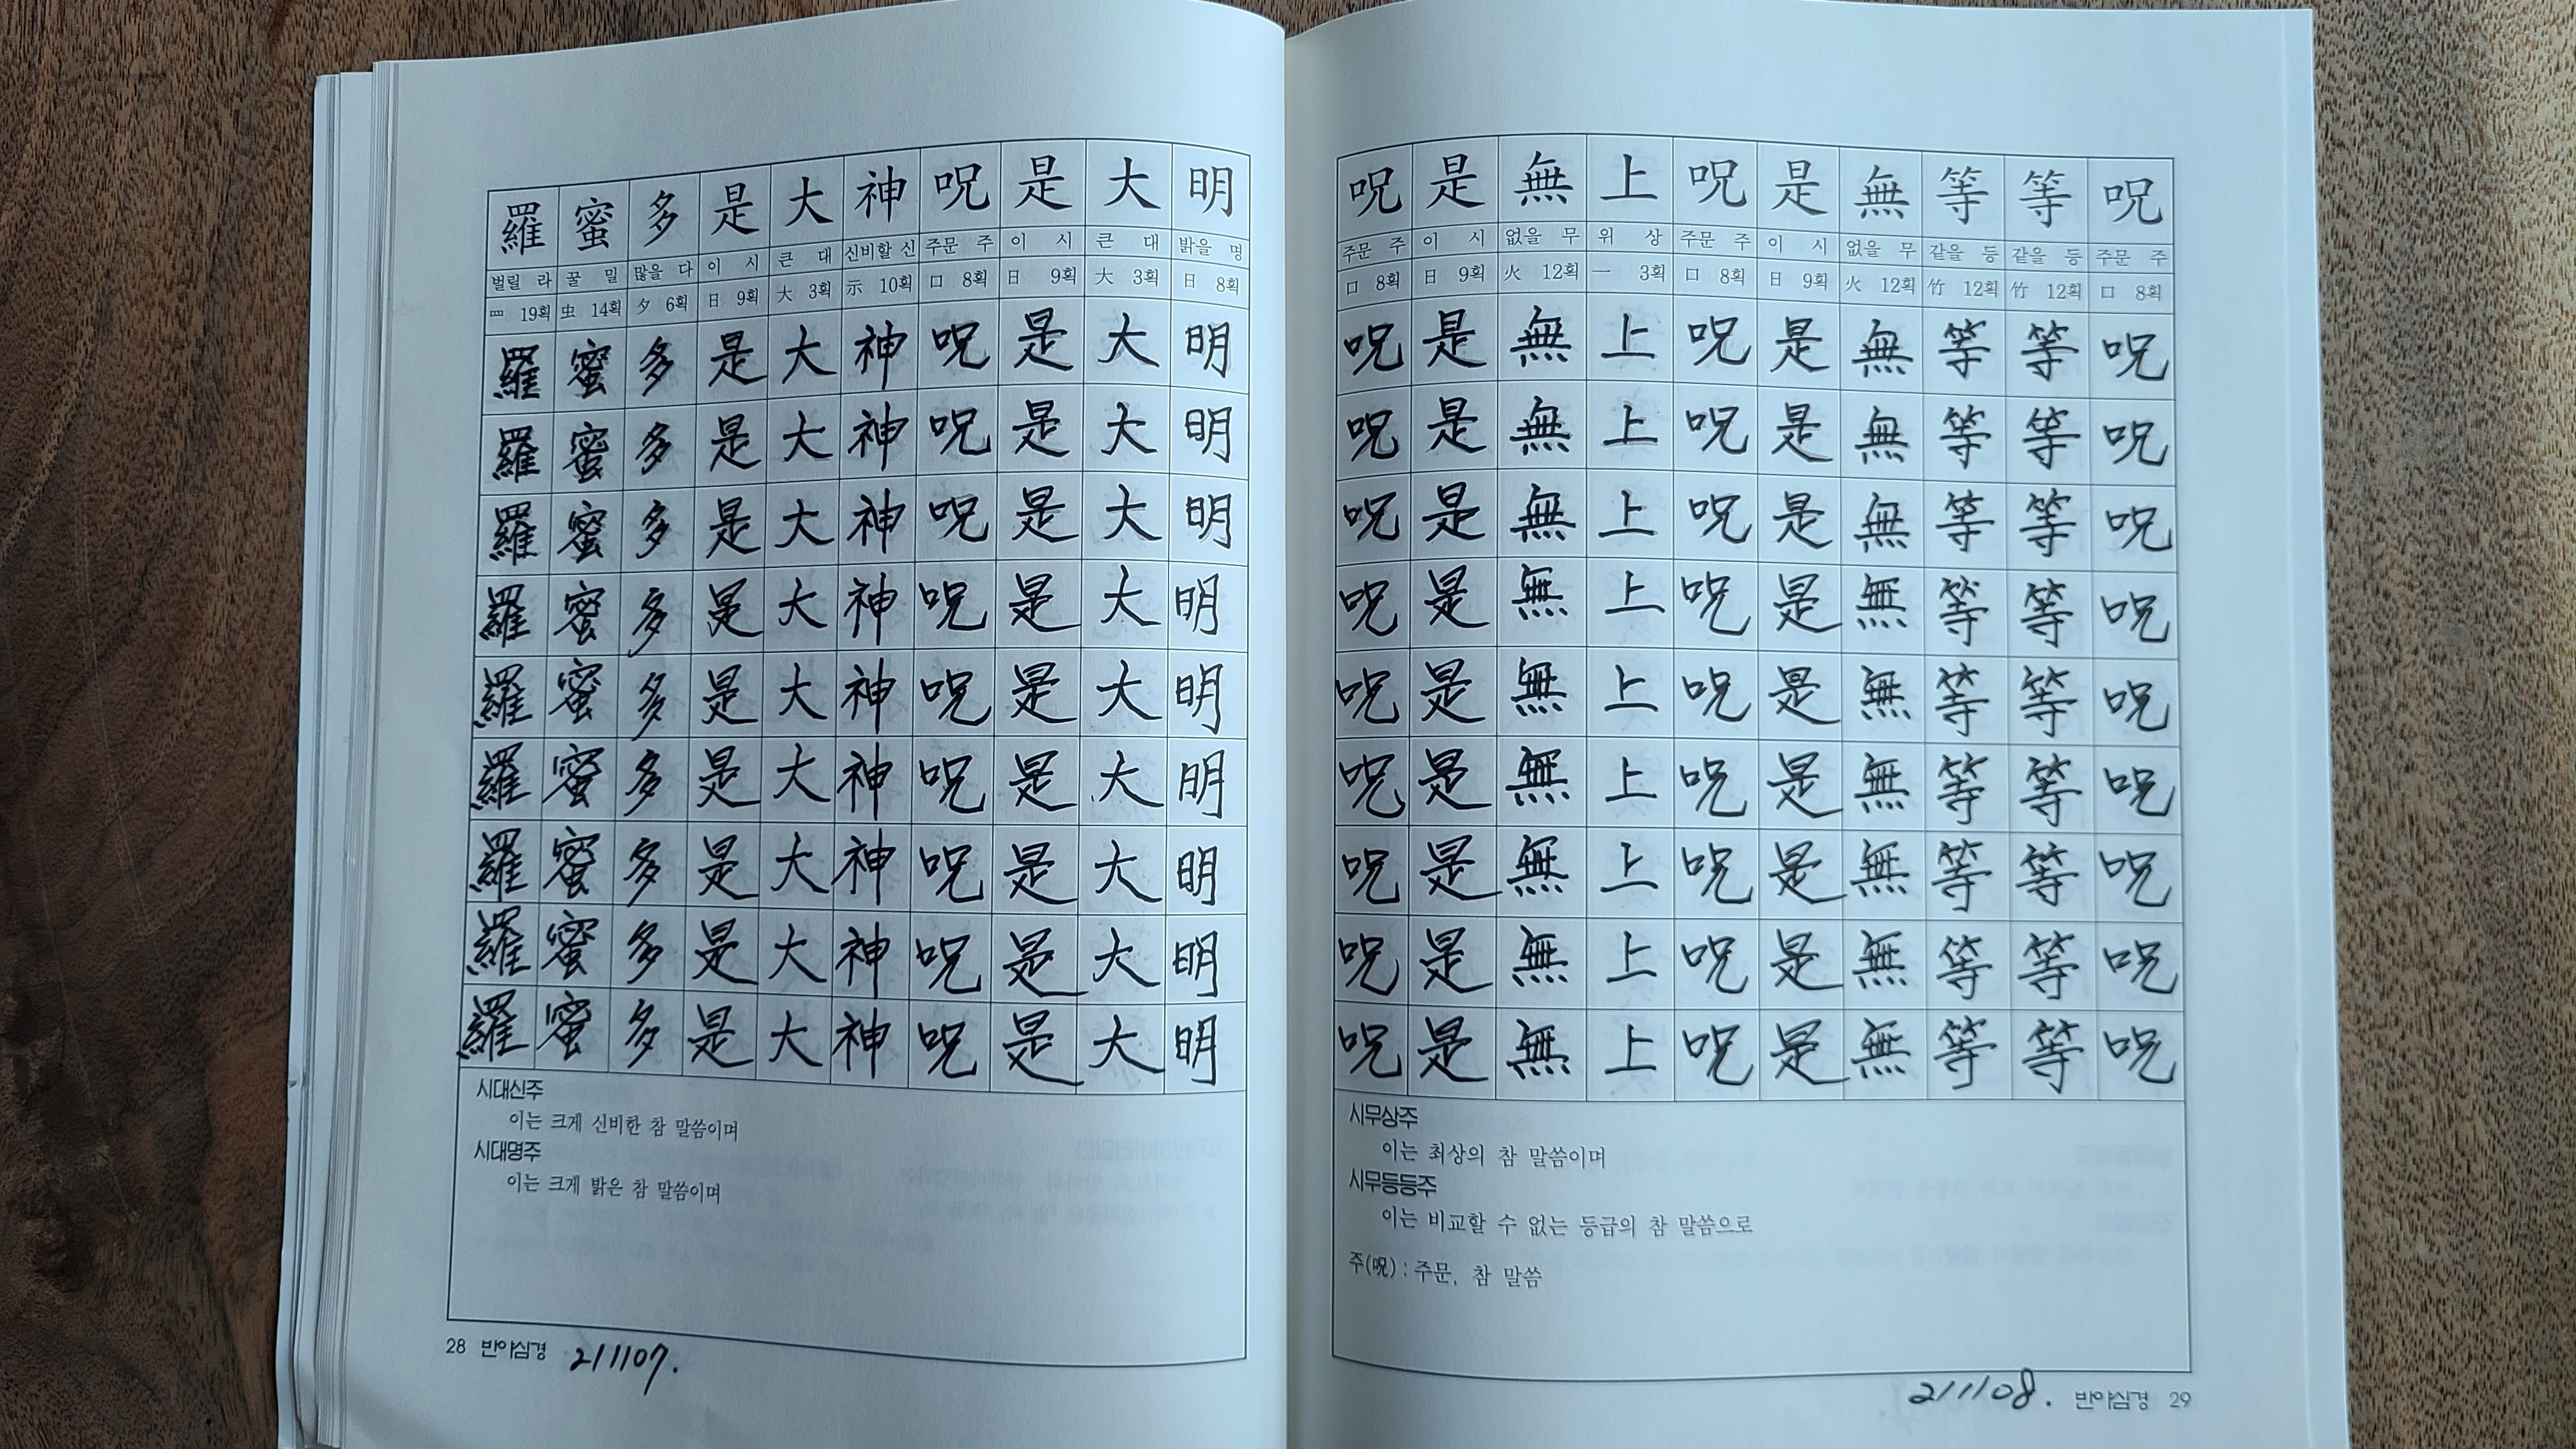 羅 蜜 多 是 大 神 呪 是 大 明
벌릴 라 꿀 밀 많을 다 이 시 큰 대 신비할 신 주문 주 이 시 큰 대 밝을 명
罒 19획 虫 14획 夕 6획 日 9획 大 3획 示 10획 口 8획 日 9획 大 3획 日 8획
羅 蜜 多 是 大 神 呪 是 大 明
羅 蜜 多 是 大 神 呪 是 大 明
羅 蜜 多 是 大 神 呪 是 大 明
羅 蜜 多 是 大 神 呪 是 大 明
羅 蜜 多 是 大 神 呪 是 大 明
羅 蜜 多 是 大 神 呪 是 大 明
羅 蜜 多 是 大 神 呪 是 大 明
羅 蜜 多 是 大 神 呪 是 大 明
羅 蜜 多 是 大 神 呪 是 大 明
시대신주
이는 크게 신비한 참 말씀이며
시대명주
이는 크게 밝은 참 말씀이며
28 반야심경 211107.
呪 是 無 上 呪 是 無 等 等 呪
주문 주 이 시 없을 무 위 상 주문 주 이 시 없을 무 같을 등 같을 등 주문 주
口 8획 日 9획 火 12획 一 3획 口 8획 日 9획 火 12획 竹 12획 竹 12획 口 8획
呪 是 無 上 呪 是 無 等 等 呪
呪 是 無 上 呪 是 無 等 等 呪
呪 是 無 上 呪 是 無 等 等 呪
呪 是 無 上 呪 是 無 等 等 呪
呪 是 無 上 呪 是 無 等 等 呪
呪 是 無 上 呪 是 無 等 等 呪
呪 是 無 上 呪 是 無 等 等 呪
呪 是 無 上 呪 是 無 等 等 呪
呪 是 無 上 呪 是 無 等 等 呪
시무상주
이는 최상의 참 말씀이며
시무등등주
이는 비교할 수 없는 등급의 참 말씀으로
주(呪) : 주문, 참 말씀
211108. 반야심경 29